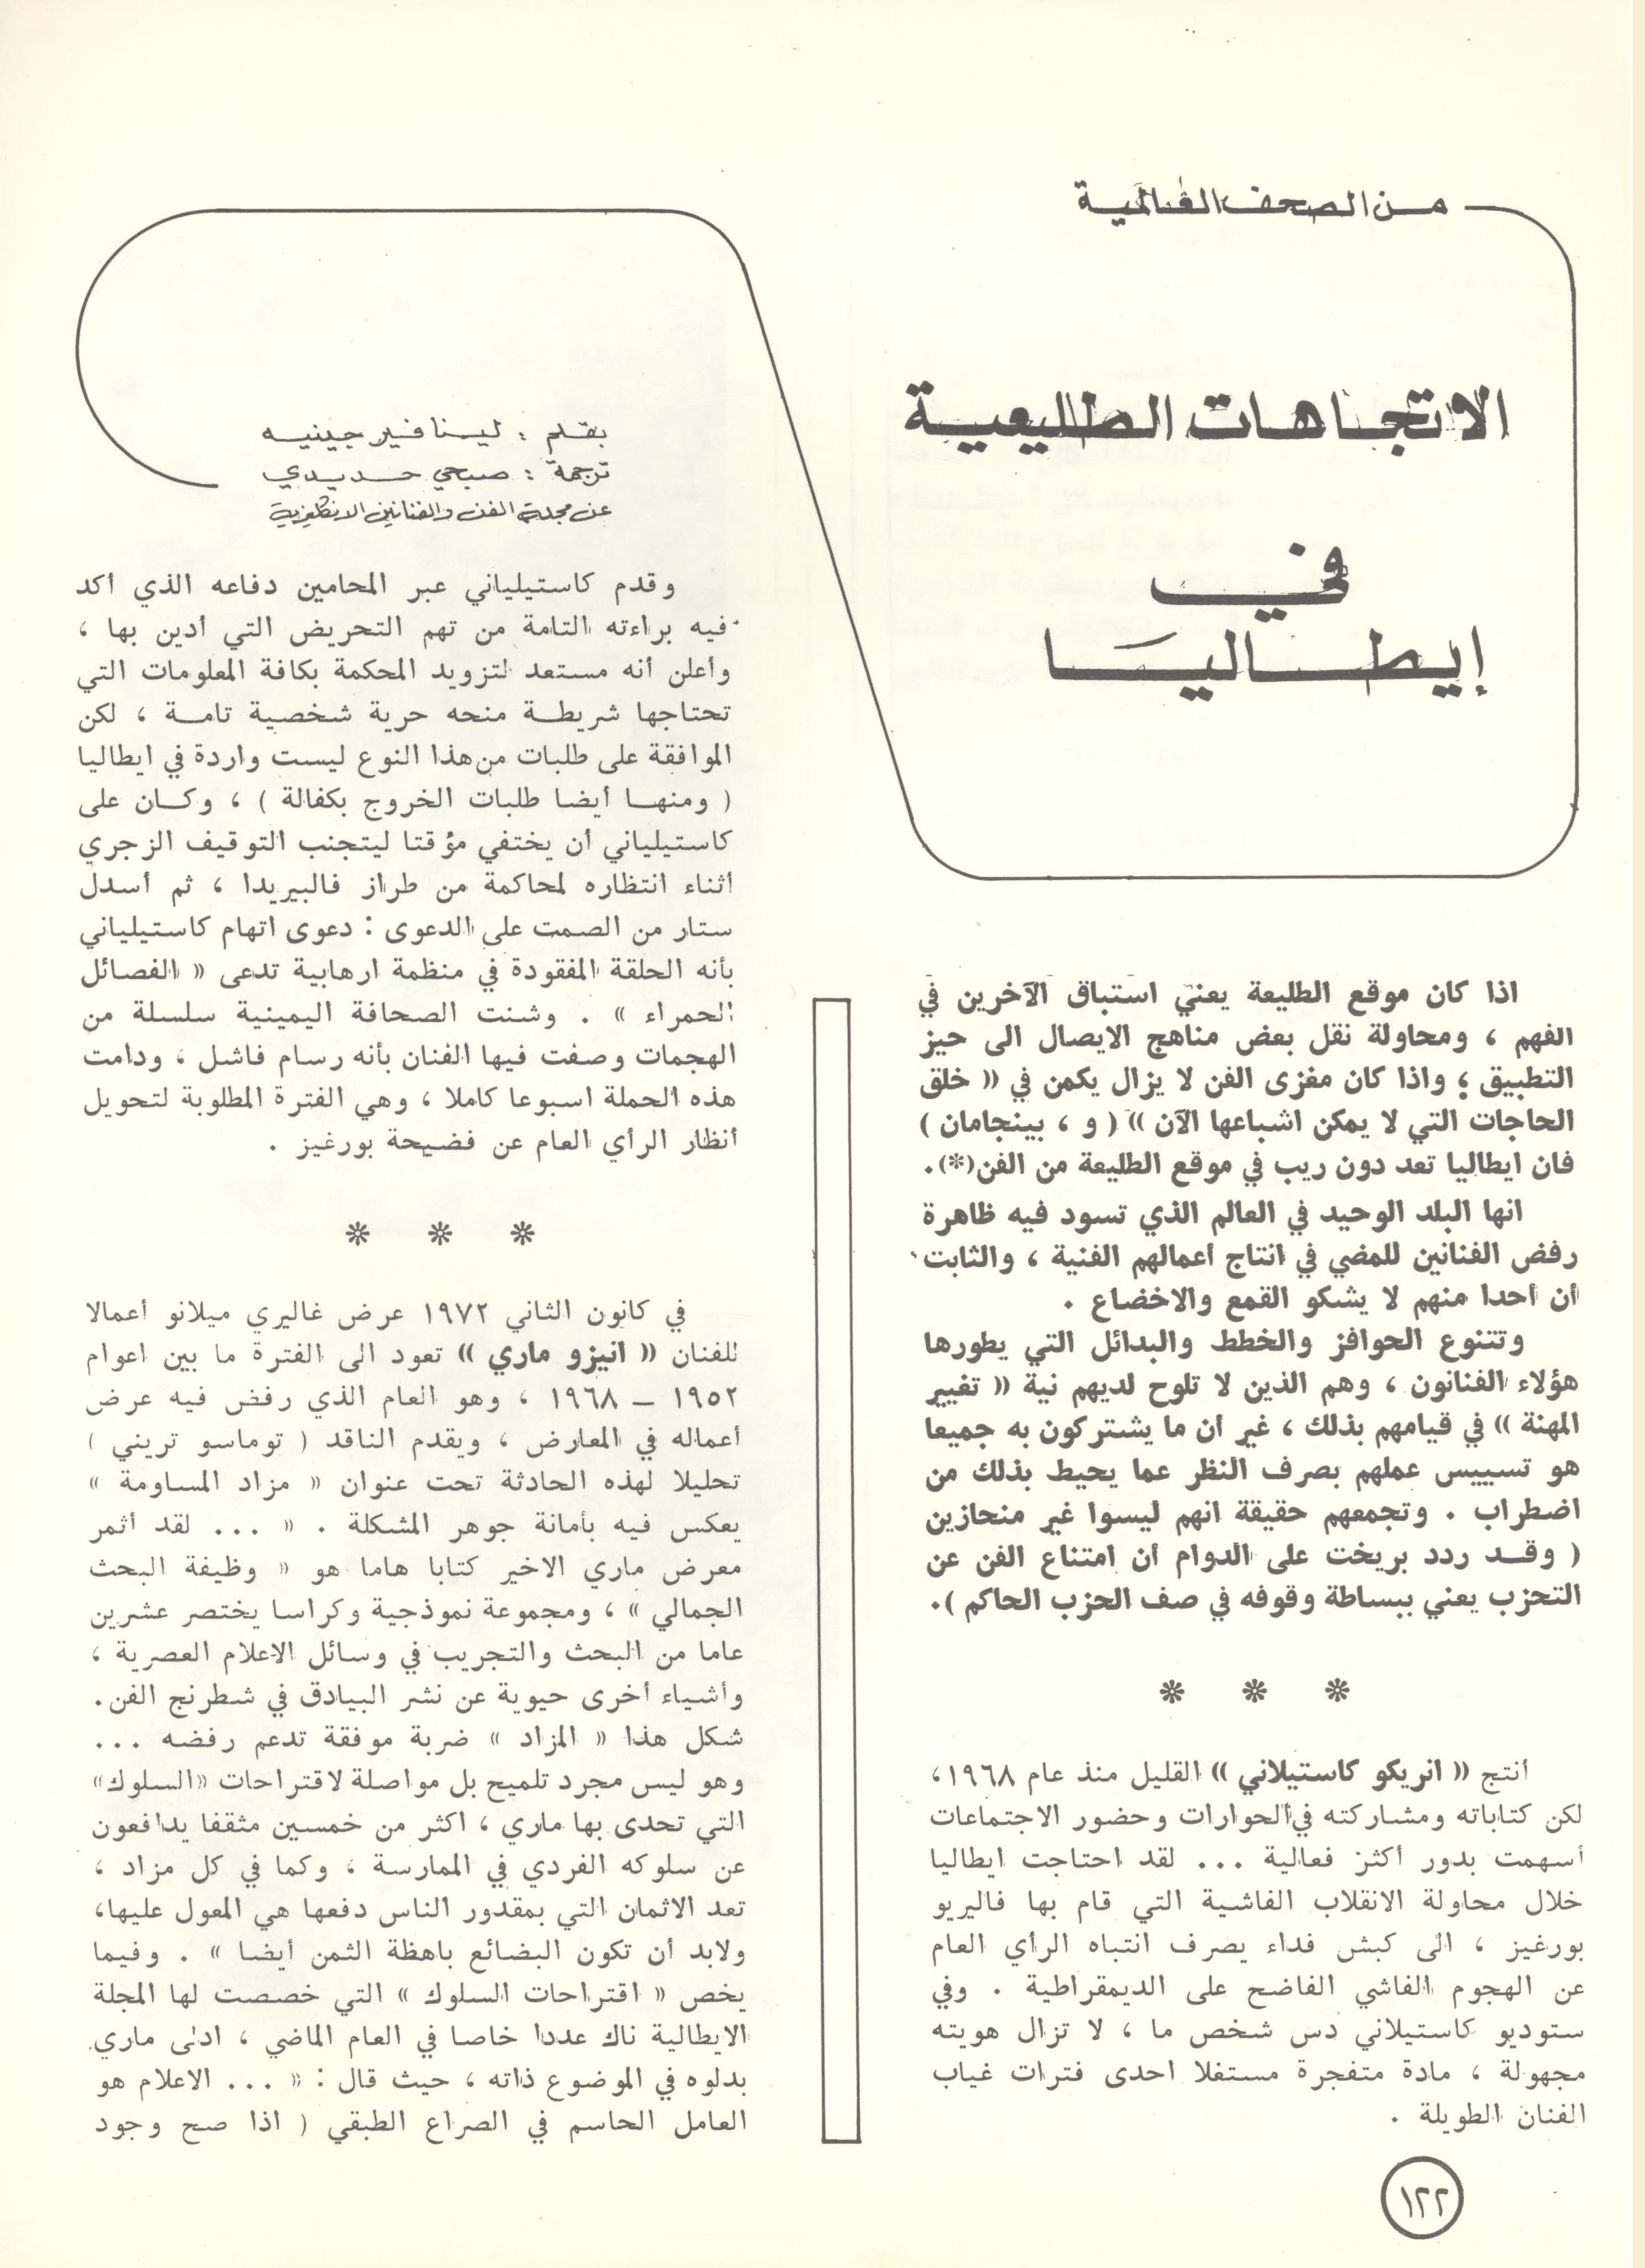 من الصحف العالمية
الاتجاهات الطليعية
في
إيطاليا
بقلم : لينا فيرجينيه
ترجمة : صبحي حديدي
عن مجلة الفن والفنانين الانكليزية
اذا كان موقع الطليعة يعني استباق الآخرين في
الفهم ، ومحاولة نقل بعض مناهج الايصال الى حيز
التطبيق ؛ واذا كان مغزى الفن لا يزال يكمن في « خلق
الحاجات التي لا يمكن اشباعها الآن » ( و ، بينجامان )
فان ايطاليا تعد دون ريب في موقع الطليعة من الفن(*).
انها البلد الوحيد في العالم الذي تسود فيه ظاهرة
رفض الفنانين للمضي في انتاج أعمالهم الفنية ، والثابت
أن أحدا منهم لا يشكو القمع والاخضاع .
وتتنوع الحوافز والخطط والبدائل التي يطورها
هؤلاء الفنانون ، وهم الذين لا تلوح لديهم نية « تغيير
المهنة » في قيامهم بذلك ، غير أن ما يشتركون به جميعا
هو تسييس عملهم بصرف النظر عما يحيط بذلك من
اضطراب . وتجمعهم حقيقة انهم ليسوا غير منحازين
( وقد ردد بريخت على الدوام أن امتناع الفن عن
التحزب يعني ببساطة وقوفه في صف الحزب الحاكم ).
* * *
أنتج « انريكو كاستيلاني » القليل منذ عام ١٩٦٨،
لكن كتاباته ومشاركته في الحوارات وحضور الاجتماعات
أسهمت بدور أكثر فعالية ... لقد احتاجت ايطاليا
خلال محاولة الانقلاب الفاشية التي قام بها فاليريو
بورغيز ، الى كبش فداء يصرف انتباه الرأي العام
عن الهجوم الفاشي الفاضح على الديمقراطية . وفي
ستوديو كاستيلاني دس شخص ما ، لا تزال هويته
مجهولة ، مادة متفجرة مستغلا احدى فترات غياب
الفنان الطويلة .
وقدم كاستيلياني عبر المحامين دفاعه الذي أكد
فيه براءته التامة من تهم التحريض التي أدين بها ،
وأعلن أنه مستعد لتزويد المحكمة بكافة المعلومات التي
تحتاجها شريطة منحه حرية شخصية تامة ، لكن
الموافقة على طلبات من هذا النوع ليست واردة في ايطاليا
( ومنها أيضا طلبات الخروج بكفالة ) ، وكان على
كاستيلياني أن يختفي مؤقتا ليتجنب التوقيف الزجري
أثناء انتظاره لمحاكمة من طراز فالبيريدا ، ثم أسدل
ستار من الصمت على الدعوى : دعوى اتهام كاستيلياني
بأنه الحلقة المفقودة في منظمة ارهابية تدعى « الفصائل
الحمراء » . وشنت الصحافة اليمينية سلسلة من
الهجمات وصفت فيها الفنان بأنه رسام فاشل ، ودامت
هذه الحملة اسبوعا كاملا ، وهي الفترة المطلوبة لتحويل
أنظار الرأي العام عن فضيحة بورغيز .
* * *
في كانون الثاني ١٩٧٢ عرض غاليري ميلانو أعمالا
للفنان « انيزو ماري » تعود الى الفترة ما بين اعوام
١٩٥٢ – ١٩٦٨ ، وهو العام الذي رفض فيه عرض
أعماله في المعارض ، ويقدم الناقد ( توماسو تريني )
تحليلا لهذه الحادثة تحت عنوان « مزاد المساومة »
يعكس فيه بأمانة جوهر المشكلة . « ... لقد أثمر
معرض ماري الاخير كتابا هاما هو « وظيفة البحث
الجمالي » ، ومجموعة نموذجية وكراسا يختصر عشرين
عاما من البحث والتجريب في وسائل الاعلام العصرية ،
وأشياء أخرى حيوية عن نشر البيادق في شطرنج الفن.
شكل هذا « المزاد » ضربة موفقة تدعم رفضه ...
وهو ليس مجرد تلميح بل مواصلة لاقتراحات «السلوك»
التي تحدى بها ماري ، اكثر من خمسين مثقفا يدافعون
عن سلوكه الفردي في الممارسة ، وكما في كل مزاد ،
تعد الاثمان التي بمقدور الناس دفعها هي المعول عليها،
ولابد أن تكون البضائع باهظة الثمن أيضا » . وفيما
يخص « اقتراحات السلوك » التي خصصت لها المجلة
الايطالية ناك عددا خاصا في العام الماضي ، ادلى ماري
بدلوه في الموضوع ذاته ، حيث قال : « ... الاعلام هو
العامل الحاسم في الصراع الطبقي ( اذا صح وجود
١٢٢